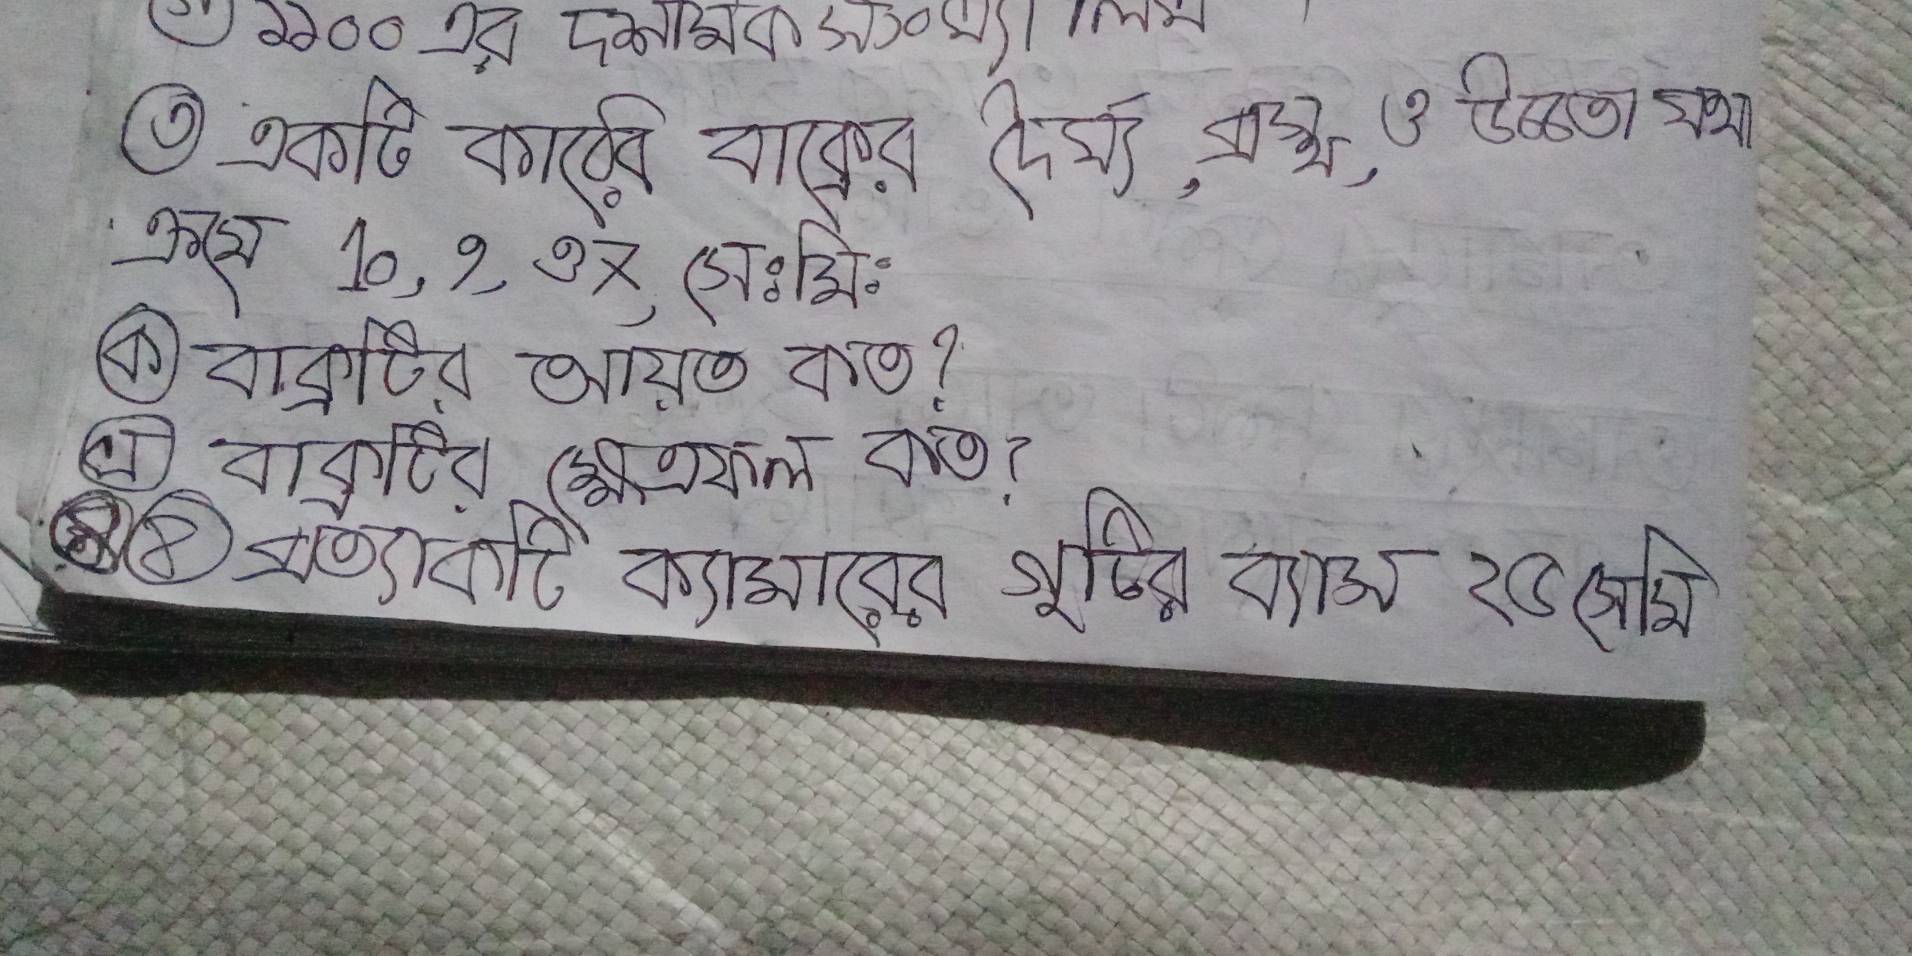 ১১০০ এর দশমিক সংখ্যা লিখ
৩ একটি কাঠের বাক্সের দৈর্ঘ্য, প্রস্থ, ও উচ্চতা যথা
ক্রমে 10, 9, ও ৮, সেঃমিঃ
ক বাক্সটির আয়ত কত?
খ বাক্সটির ক্ষেত্রফল কত?
৪ প্রত্যাকটি ক্যামারের খুটির ব্যাস ২৫ সেমি